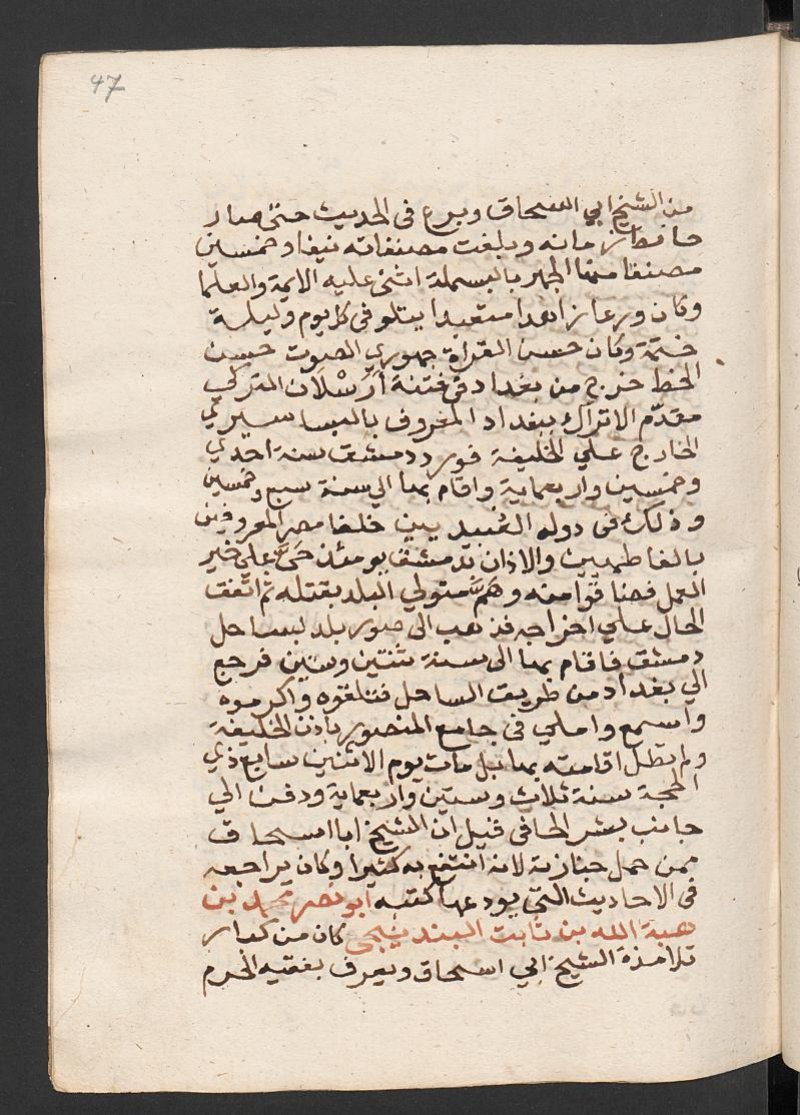 47
من الشيخ ابي اسحاق وبرع في الحديث حتى صار
حافظ زمانه وبلغت مصنفاته نيفا وخمسين
مصنفا منها الجهر بالبسملة اثنى عليه الايمة والعلما
وكان ورعا زاهدا متعبدا يتلو في كل يوم وليلة
ختمة وكان حسن القراة جهوري الصوت حسن
الخط خرج من بغداد في فتنة أرْسْلَان التركي
مقدّم الاتراك ببغداد المعروف بالبساسيري
الخارج علي الخليفة فورد دمشق سنة احدي
وخمسين واربعماية واقام بها الي سنة سبع وخمسين
وذلك في دوله العُبيديين خلفا مصر المعروفين
بالفاطميين والاذان بدمشق يومئذ حَيَّ علي خير
العمل فضاقوا منه وهَمَّ متولي البلد بقتله ثم اتفقت
الحال علي اخراجه فذهب الى صور بلد بساحل
دمشق فاقام بها الى سنة ثنتين وستين فرجع
الي بغداد من طريق الساحل فتلقوه واكرموه
واسمع واملي في جامع المنصور باذن الخليفة
ولم تطل اقامته بها بل مات يوم الاثنين سابع ذي
الحجة سنة ثلاث وستين واربعماية ودفن الي
جانب بشر الحافي قيل ان الشيخ ابا اسحاق
ممن حمل جنازته لانه انتفع به كثيرا وكان يراجعه
في الاحاديث التي يودعها كتبه ابو نصر محمد بن
هبة الله بن ثابت البندنيجي كان من كبار
تلامذة الشيخ ابي اسحاق ويعرف بفقيه الحرم